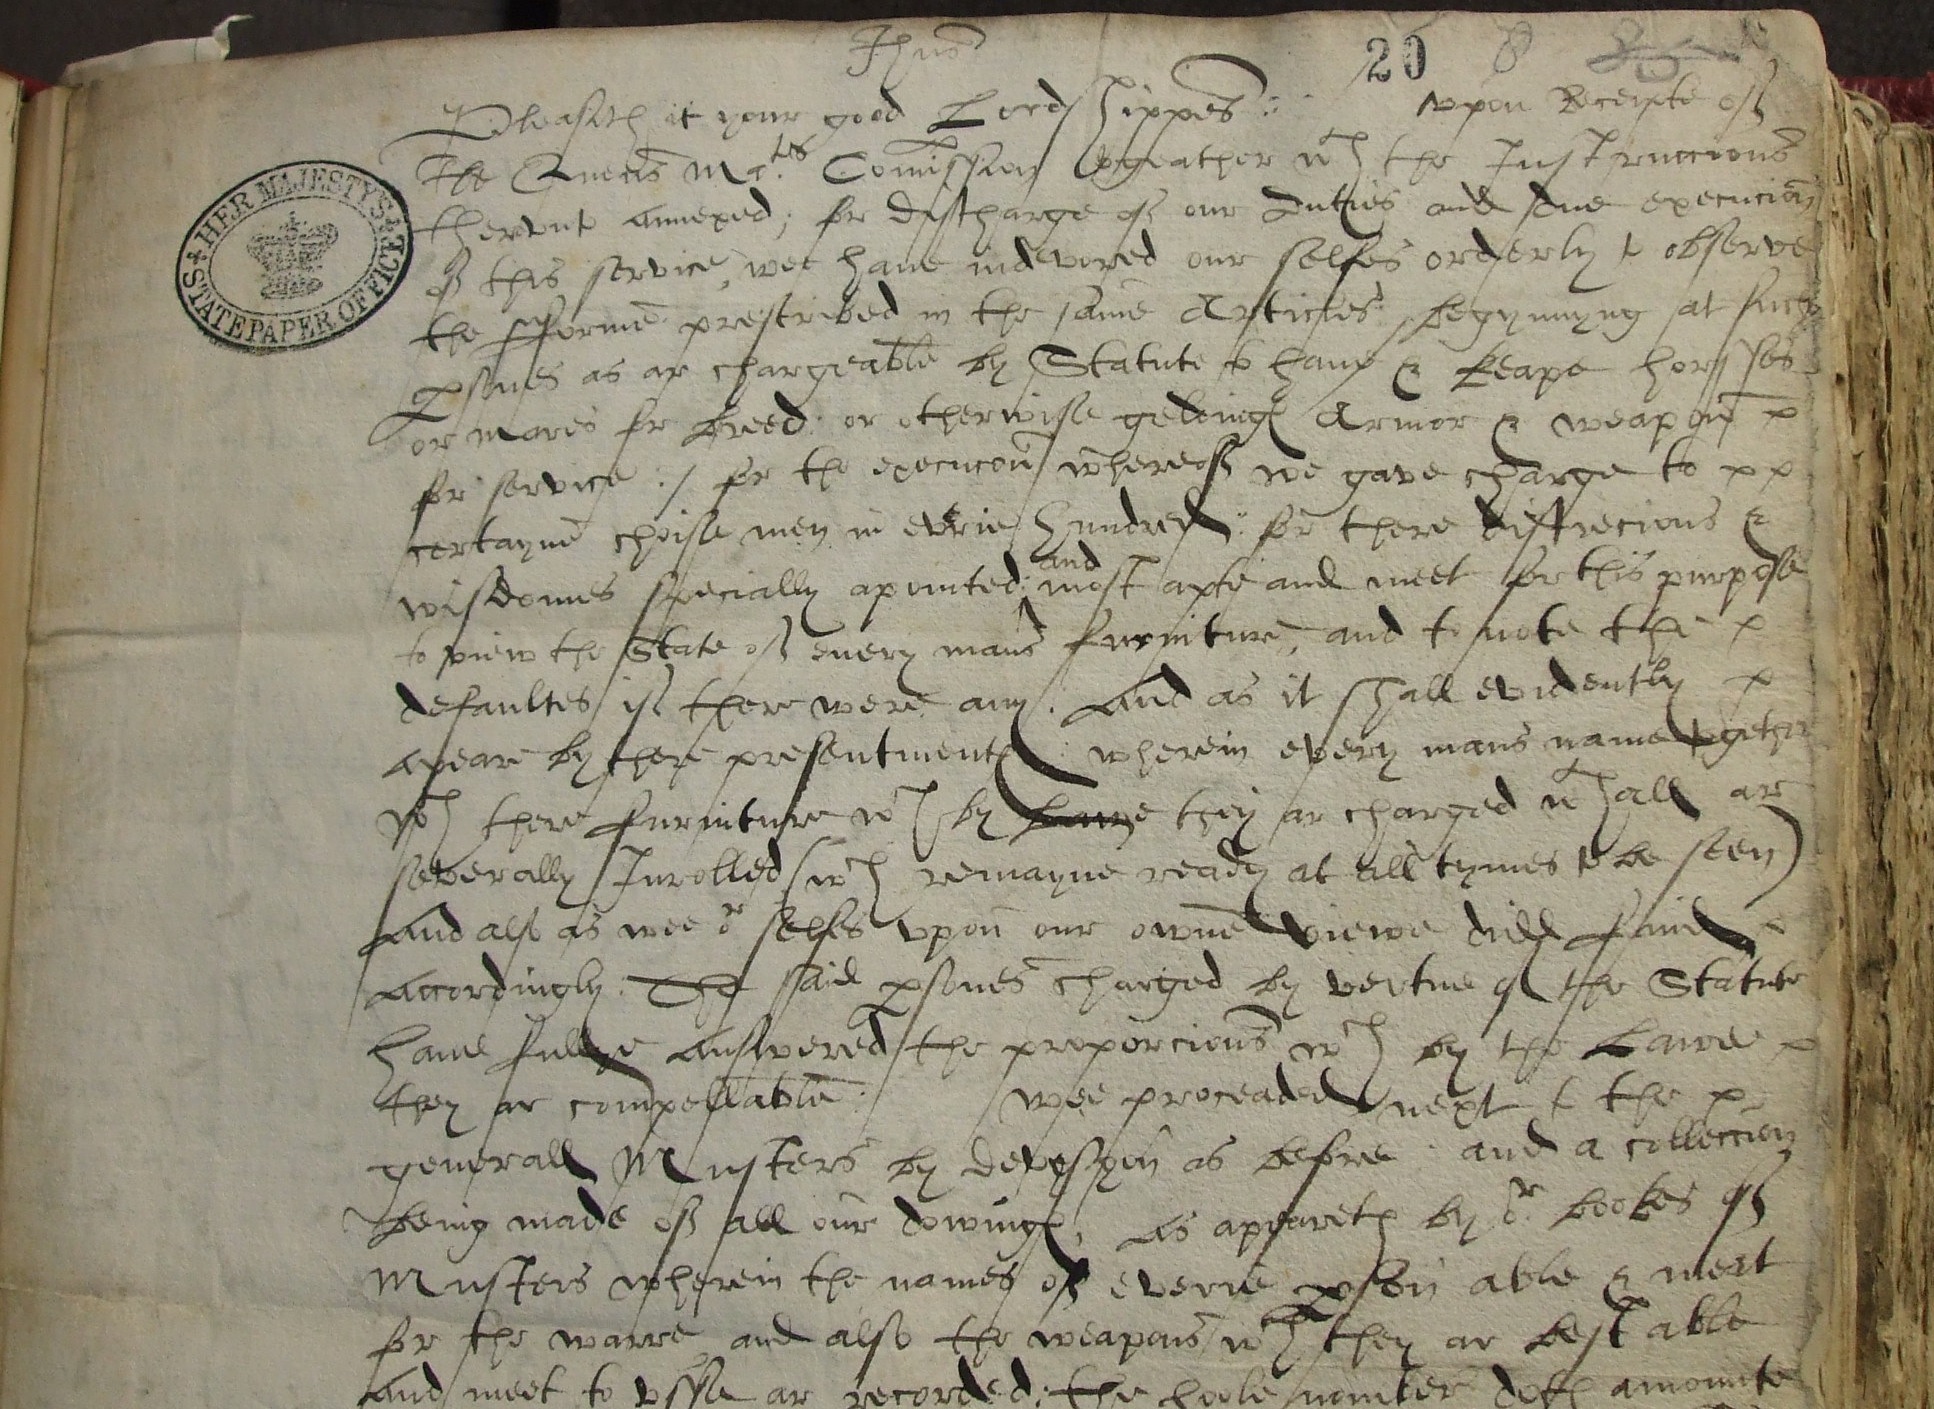 Jhus
20 8
Pleasith it your good Lordshippes :· vpon Receipte off
the Quenes Ma:tes Comission togeather wth the Instruccions
thervnto annexed; for discharge off our duties and dew execucion
off this service, wee haue indevored our selfes orderly to observe
the fforme prescribed in the same Articles begynnyng at such
psones as ar chargeable by Statute to haue & keape horsses
or mares for breed: or otherwise geldings Armor & weapons
for service :/ for the execucon whereoff we gave charge to
certayne choise men in everie hundred: for there disscrecions &
wisdomes specially apointed: and most apte and meet for this purpose
to view the State off euery mans furniture, and to note the
defaultes iff there were any: And as it shall evidently
apeare by there presentments: wherein every mans name together
wth there furniture wch by Lawe they ar charged wthall ar
severally Inrolled (wch remayne ready at all tymes to be seen)
And also as wee or selfes vpon our owne viewe didd find
Accordingly. The said psones charged by vertue of the Statute
haue fullye Answered the proporcions wch by the Lawe
they ar compellable: / wee proceaded next to the
generall Musters by devysyon as before: and a colleccion
being made off all our dowings, As apeareth by or bookes off
Musters wherein the names off everie pson able & meet
for the warre and also the weapons wch they ar best able
And meet to vsse ar recorded: the hoole nomber doth amounte
HER MAJESTY'S
STATE PAPER OFFICE